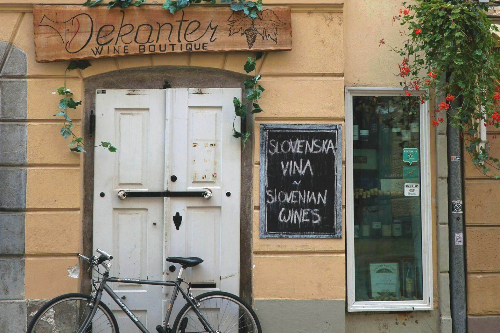 Dekanter
WINE BOUTIQUE
SLOVENSKA
VINA
~
SLOVENIAN
WINES